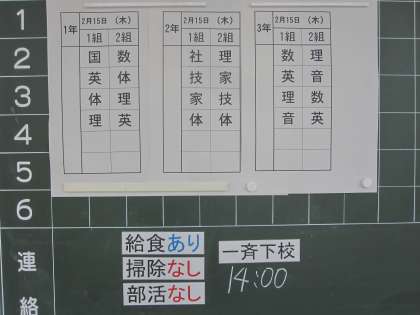 1
2
3
4
5
6
連
絡
1年 2月15日 (木)
1組 2組
国 数
英 体
体 理
理 英
2年 2月15日 (木)
1組 2組
社 理
技 家
家 技
体 体
3年 2月15日 (木)
1組 2組
数 理
英 音
理 数
音 英
給食あり
掃除なし
部活なし
一斉下校
14:00